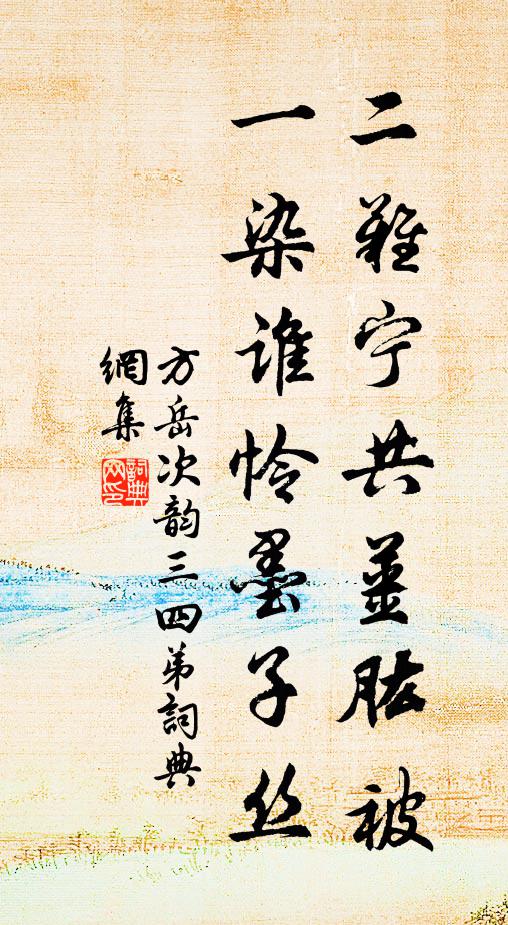 二难宁共姜肱被
一染谁怜墨子丝
方岳次韵三四弟詞典
網集
詞典网印